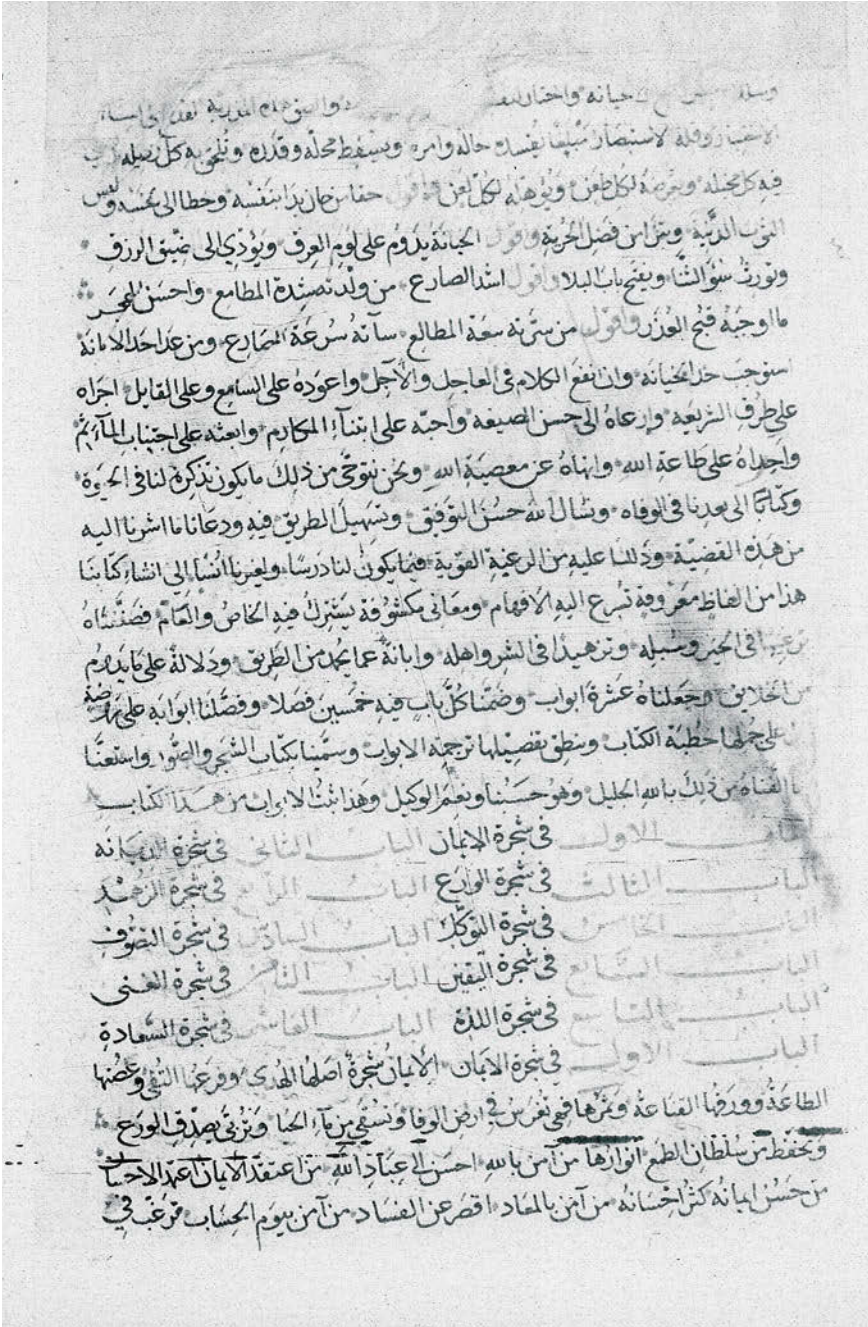 حيانه واختار لنفسه
الاستبصار وقلة الاستبصار متلفا يفسد حاله وامره ويسقط محله وقدره ويلحق به كل رذيله
فيه كل مخيله ويعرضه لكل طعن ويؤهله لكل لعن واقول حقا من خان بدا بنفسه وخطا الى بخسه ولبس
الثوب الدنية وتعرا من فضل الحرية واقول الخيانة يدوم على لوم العرف ويؤدي الى ضيق الرزق
ويورث سؤالثنا ويفتح باب البلا واقول اشد الصارع من ولدته شدة المطامع واحسن الهجر
ما اوجبه قبح العذر واقول من سرته سعة المطالع سآته سرعة المصارع ومن عدا حد الامانة
استوجب حد الخيانه وان انفع الكلام فى العاجل والآجل واعوده على السامع وعلى القايل اجراه
على طرف الشريعه وارعاه الى حسن الصيغه واحبه على ابتنآء المكارم وابعثه على اجتناب المآثم
واحداه على طاعة الله وانهاه عن معصية الله ونحن نتوخى من ذلك مايكون تذكرة لنا فى الحيوة
وكتابا الى بعدنا فى الوفاه ونسال الله حسن التوفيق وتسهيل الطريق فيه ودعانا ما اشرنا اليه
من هذه القضية ودللنا عليه من الرغبة القوية فيما يكون لنا درسا ولغيرنا انسا الى انشاء كتابنا
هذا من الفاظ معروفة تسرع اليه الافهام ومعانى مكشوفة يشترك فيه الخاص والعام فصنفناه
ترغيبا فى الخير وسبله وتزهيدا فى الشر واهله وابانة عما يحمد من الطريق ودلالة على ما يذم
من الخلايق وجعلناه عشرة ابواب وضمنا كل باب فيه خمسين فصلا وفصلنا ابوابه على
على جملها خطبة الكتاب وينطق بتفصيلها ترجمة الابواب وسمينا بكتاب الشجر والصور واستعنا
الفناه من ذلك بالله الجليل وهو حسبنا ونعم الوكيل وهذا ثبت الابواب من هذا الكتاب
الباب الاول فى شجرة الايمان الباب الثانى فى شجرة الديانه
الباب الثالث فى شجرة الورع الباب الرابع فى شجرة الزهد
الباب الخامس فى شجرة التوكل الباب السادس فى شجرة التصوف
الباب السابع فى شجرة اليقين الباب الثامن فى شجرة الغنى
الباب التاسع فى شجرة اللذة الباب العاشر فى شجرة السعادة
الباب الاول فى شجرة الايمان الايمان شجرة اصلها الهدى وفرعها التقى وغصنها
الطاعة وورقها القناعة وثمرها فهي تغرس في ارض الوفا وتسقي من مآء الحيا وتربى بصدق الورع
وتحفظ من سلطان الطمع انوارها من آمن بالله احسن الى عباد الله من اعتقد الايمان اعتمد الاحسان
من حسن ايمانه كثر احسانه من آمن بالمعاد اقصر عن الفساد من آمن بيوم الحساب رغب في